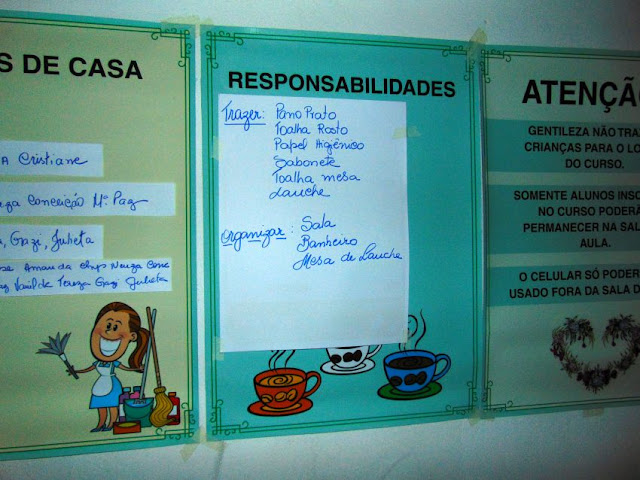 S DE CASA
A Cristiane
Conceição Mª Paz
Gazi, Julieta
Amanda
Tereza Gazy Julieta
RESPONSABILIDADES
Trazer: Pano Prato
Toalha Rosto
Papel Higiênico
Sabonete
Toalha mesa
Lanche
Organizar: Sala
Banheiro
Mesa de Lanche
ATENÇÃO
GENTILEZA NÃO TRAZ
CRIANÇAS PARA O LO
DO CURSO.
SOMENTE ALUNOS INSC
NO CURSO PODERÃ
PERMANECER NA SAL
AULA.
O CELULAR SÓ PODER
USADO FORA DA SALA D